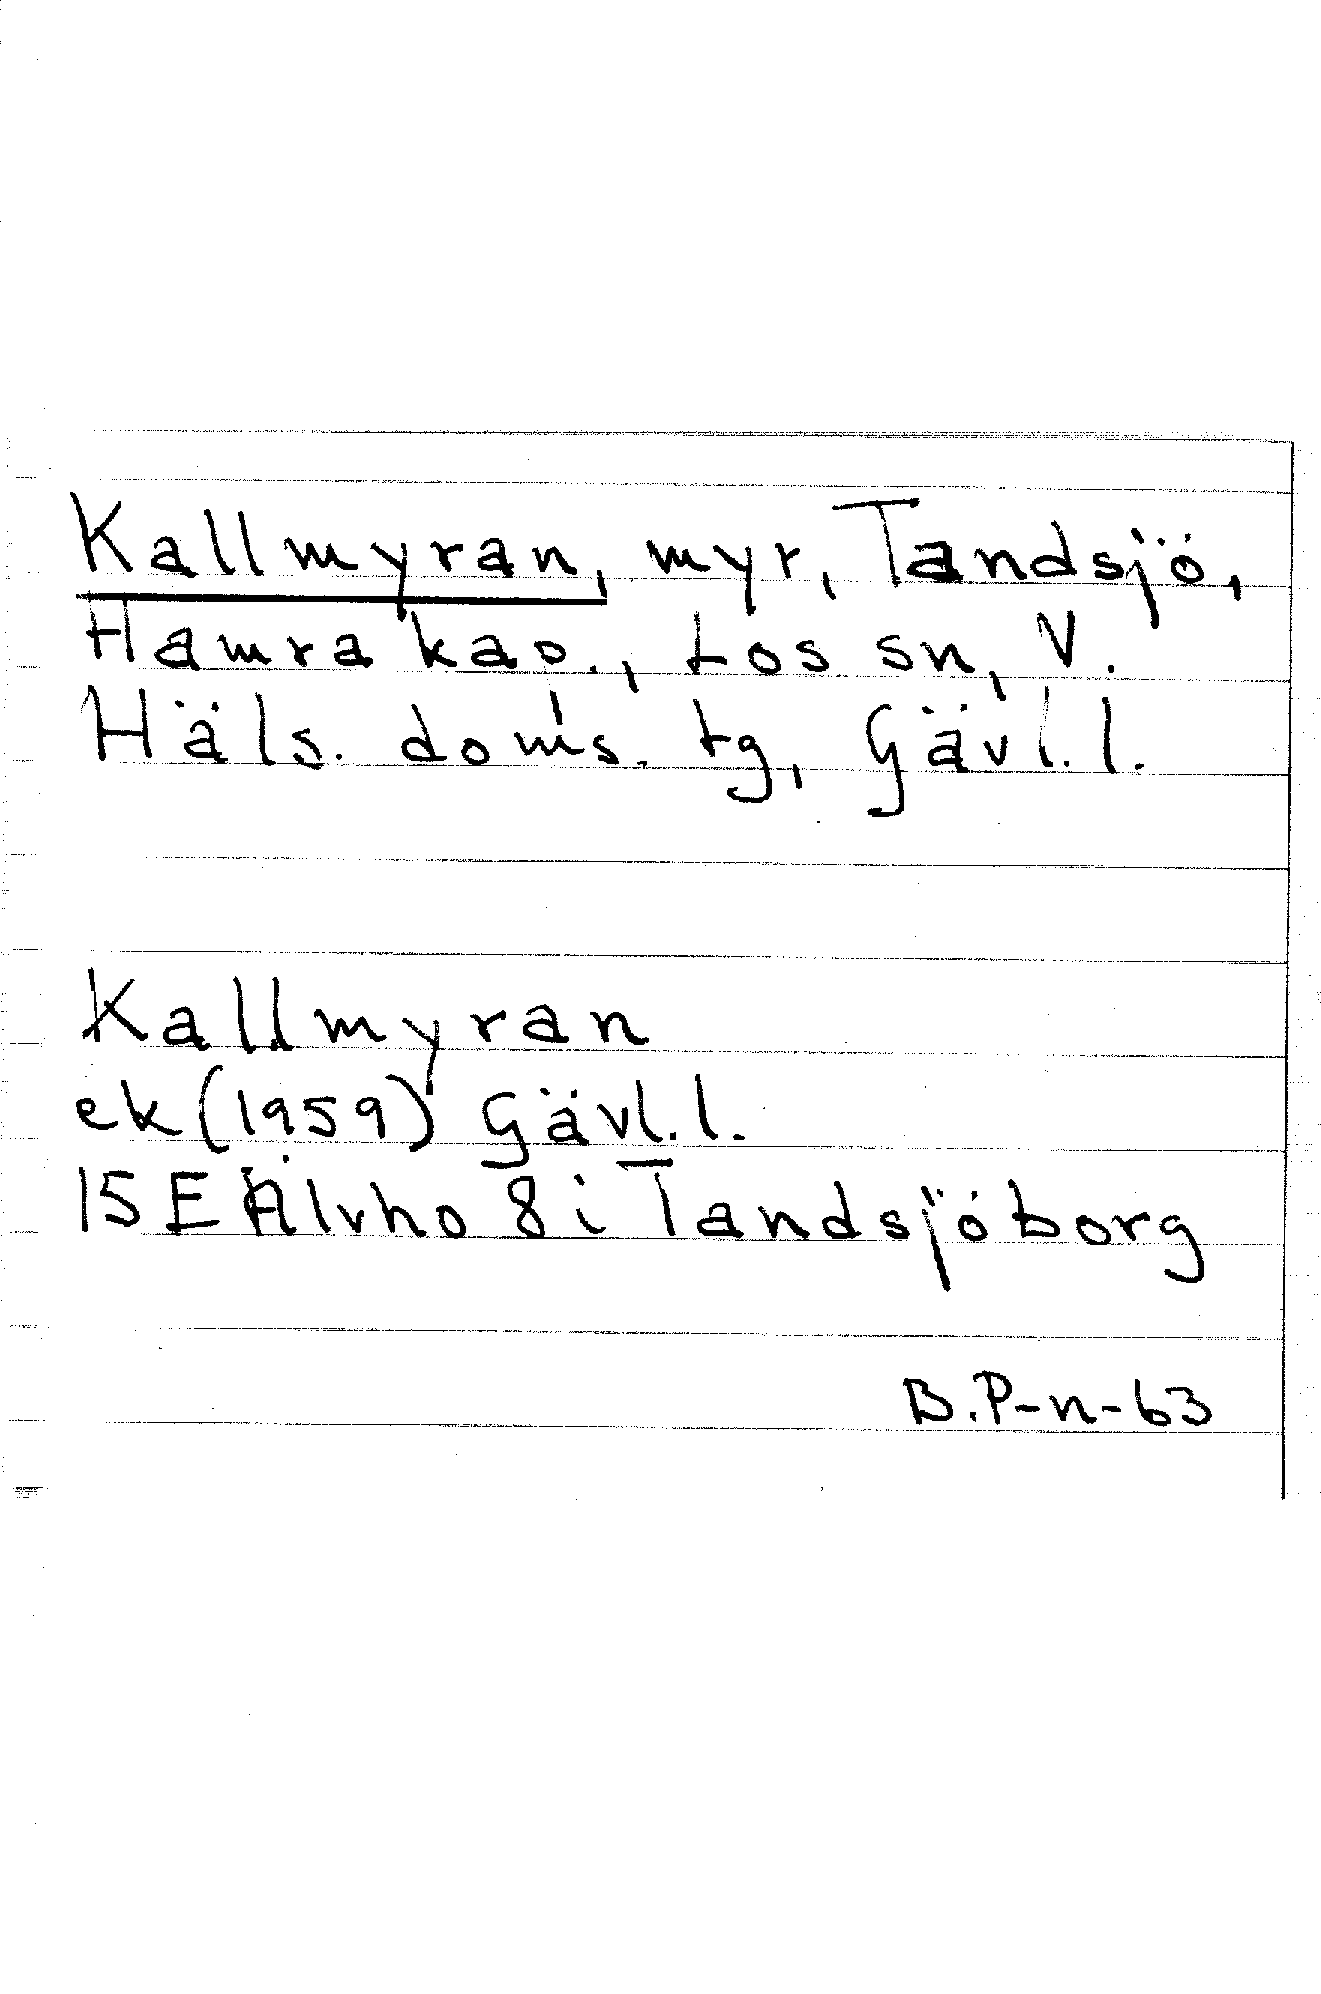 Kallmyran, myr, Tandsjö,
Hamra kap., Los sn, V.
Häls. doms. tg, Gävl. l.
Kallmyran
ek (1959) Gävl. l.
15 E Älvho 8 i Tandsjöborg
B.P-n-63